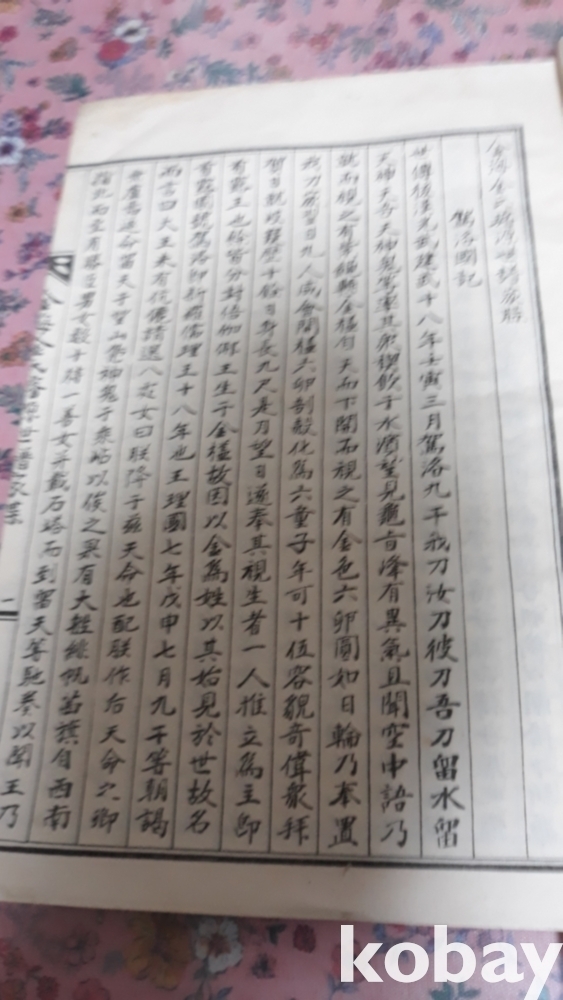 駕洛國記
世傳後漢光武建武十八年壬寅三月駕洛九干我刀汝刀彼刀吾刀留水留
天神天奇天神鬼等率其衆禊飮于水濱望見龜旨峰有異氣且聞空中語乃
就而視之有紫纓縣金榼自天而下開而視之有金色六卵圓如日輪乃奉置
我刀家翌日九人咸會開榼六卵剖殼化爲六童子年可十位容貌奇偉衆拜
賀日就岐嶷歷十餘日身長九尺是月望日遂奉其視生者一人推立爲主卽
首露王也餘皆分封伽倻王生于金榼故因以金爲姓以其始見於世故名
首露國號駕洛卽新羅儒理王十八年也王理國七年戊申七月九干等朝謁
而言曰大王未有伉儷請選 女曰朕降于玆天命也配朕作后天命 卿
等慮焉 命留天于望山 神鬼于乘岵以候之果有大 緋帆茜旗自西南
指北而 有 男女數十 一善女并載石塔而到留天等 奏以聞王乃
金海金氏 世譜
一
kobay